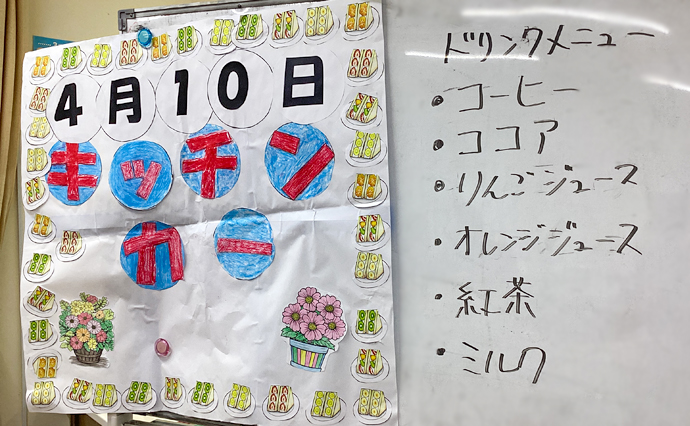 4月10日
キッチン
カー
ドリンクメニュー
・コーヒー
・ココア
・りんごジュース
・オレンジジュース
・紅茶
・ミルク